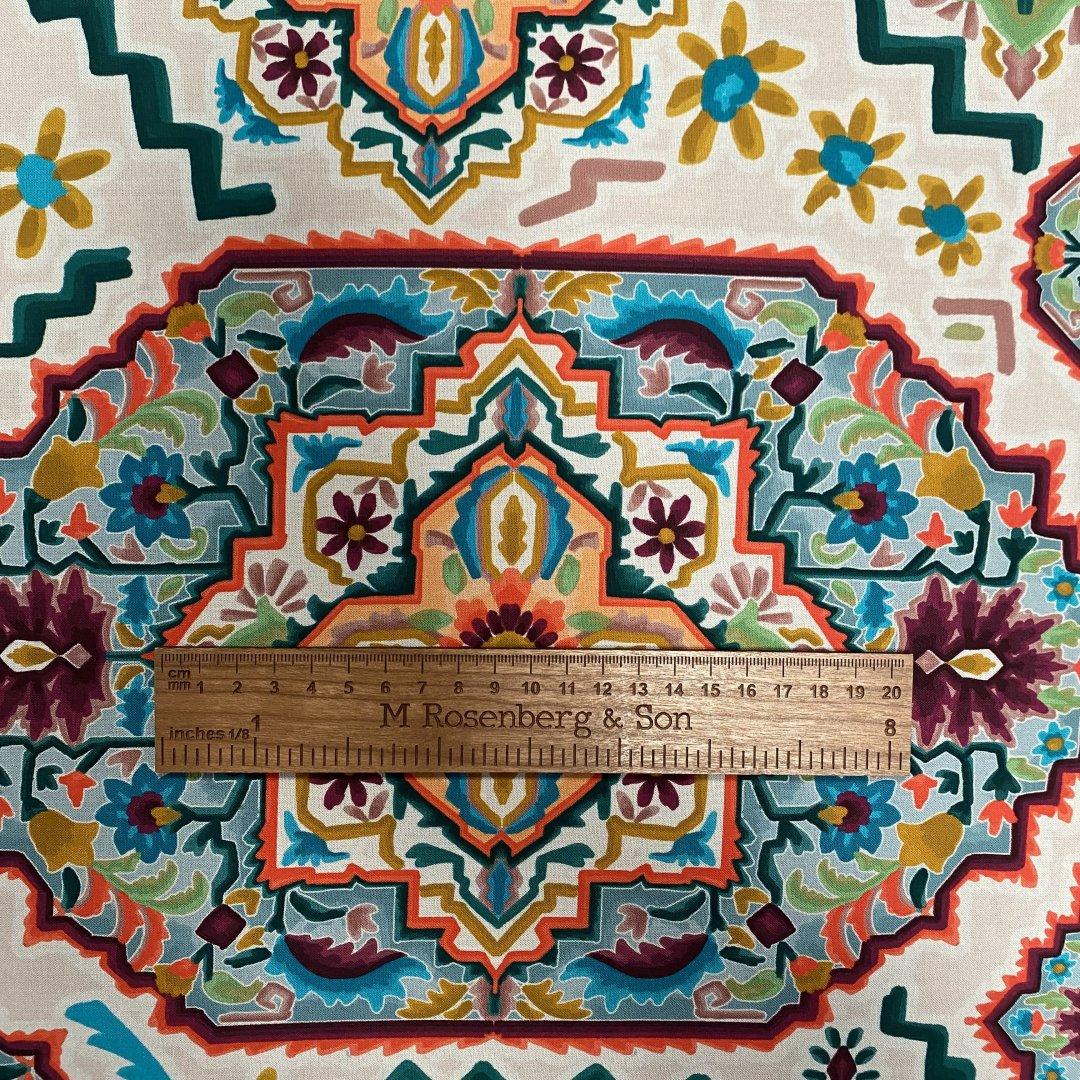 cm
mm 1 2 3 4 5 6 7 8 9 10 11 12 13 14 15 16 17 18 19 20
M Rosenberg & Son
inches 1/8 1 8